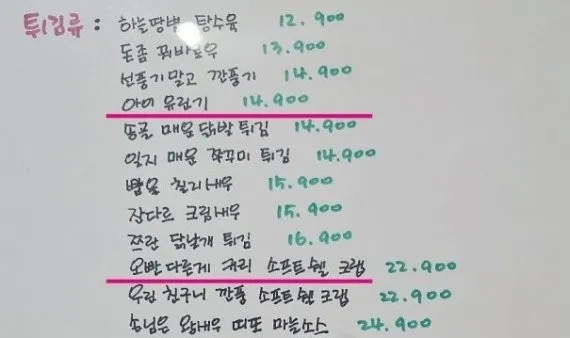 튀김류 : 하늘땅병 탕수육 12.900
돈좀 꿔바로우 13.900
선풍기말고 깐풍기 14.900
아이 유린기 14.900
송골 매운 닭발 튀김 14.900
일지 매운 쭈꾸미 튀김 14.900
밥은 칠리새우 15.900
잔다르 크림새우 15.900
쯔란 닭날개 튀김 16.900
오빤 다를게 커리 소프트 쉘 크랩 22.900
우린 친구니 깐풍 소프트 쉘 크랩 22.900
손님은 왕새우 띠또 마늘소스 24.900